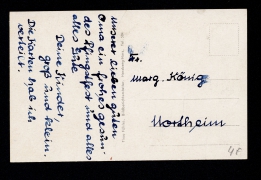 unserer lieben guten
Oma ein frohes gesun-
des Pfingstfest und alles
alles Gute
Deine Kinder,
groß und klein.
Die Karten hab ich
verteilt.
Fr.
Marg. König
Northeim
48